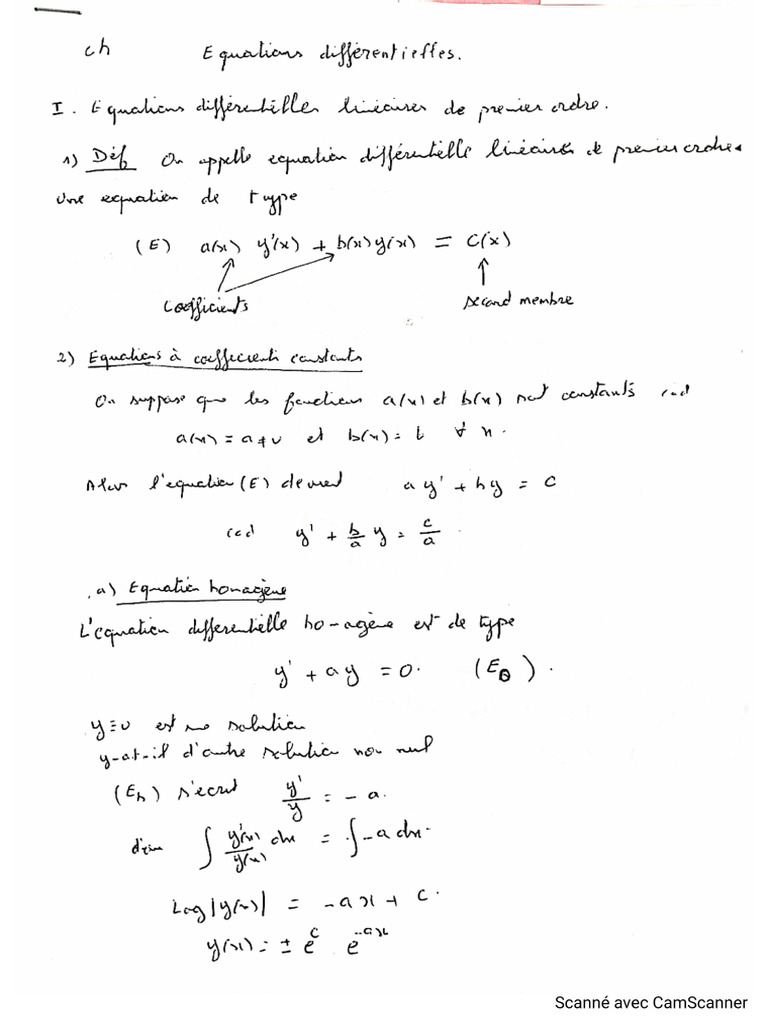 ch Equations différentielles.
I. Equations différentielles linéaires de premier ordre.
1) Déf On appelle equation différentielle linéaire de premier ordre
une equation de type
(E) a(x) y'(x) + b(x)y(x) = c(x)
Coefficients second membre
2) Equations à coefficients constants
On suppose que les fonctions a(x) et b(x) sont constants cad
a(x) = a ≠ 0 et b(x) = b ∀ x.
Alors l'equation (E) devient ay' + by = c
cad y' + b/a y = c/a.
a) Equation homogène
L'equation differentielle homogène est de type
y' + ay = 0. (E₀).
y ≡ 0 est une solution
y-at-il d'autre solution non nul
(Eh) s'ecrit y'/y = -a.
d'où ∫ y'(x)/y(x) dx = ∫ -a dx.
Log|y(x)| = -ax + c.
y(x) = ± e^c e^-ax
Scanné avec CamScanner